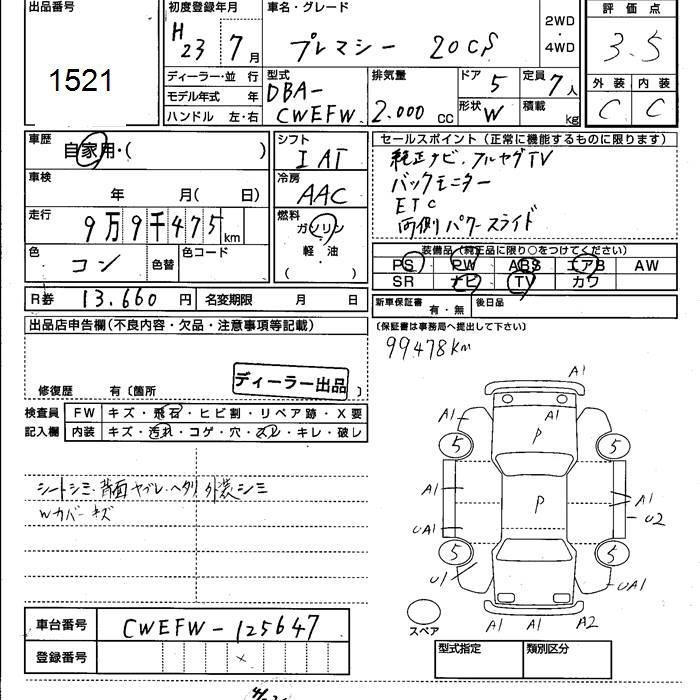 出品番号
1521
初度登録年月
H 23 7 月
車名・グレード
プレマシー 20CS
2WD
・
4WD
評価点
3.5
外装 内装
C C
ディーラー・並 行
モデル年式 年
ハンドル 左・右
型式
DBA-
CWEFW
排気量
2.000 CC
ドア 5
形状 W
定員 7 人
積載 kg
車歴
自家用・( )
車検
年 月( 日)
走行
9万9千475 km
色
コン
色替
色コード
シフト
IAT
冷房
AAC
燃料
ガソリン
軽・油
( )
セールスポイント(正常に機能するものに限ります)
純正ナビ.フルセグTV
バックモニター
ETC
両側パワースライド
装備品(純正品に限り○をつけてください)
PS PW ABS エアB AW
SR ナビ TV カワ
R券 13.660 円
名変期限 月 日
新車保証書
有・無
後日品
(保証書は事務局へ提出して下さい)
出品店申告欄(不良内容・欠品・注意事項等記載)
99478Km
ディーラー出品
修復歴 有〔箇所 〕
検査員
記入欄
FW キズ・飛石・ヒビ割・リペア跡・X要
内装 キズ・汚れ・コゲ・穴・スレ・キレ・破レ
シートシミ・背面ヤブレ・ヘタリ 外装シミ
Wカバーキズ
A1
A1 A1
P
5 5
A1 P A1
UA1 U2
5 5
U1 UA1
A1 A1 A2
スペア
車台番号 CWEFW-125647
登録番号
型式指定 類別区分